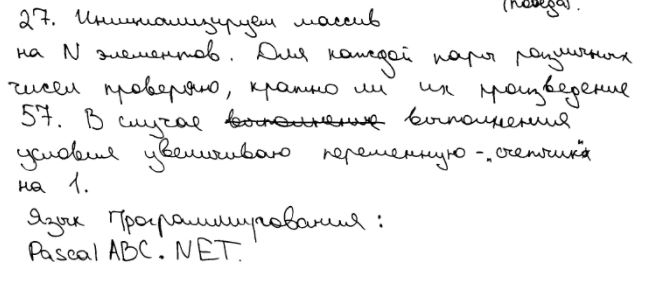 (победа).
27. Инициализируем массив
на N элементов. Для каждой пары различных
чисел проверяю, кратно ли их произведение
57. В случае выполнения выполнения
условия увеличиваю переменную-„счетчик"
на 1.
Язык Программирования:
Pascal ABC.NET.